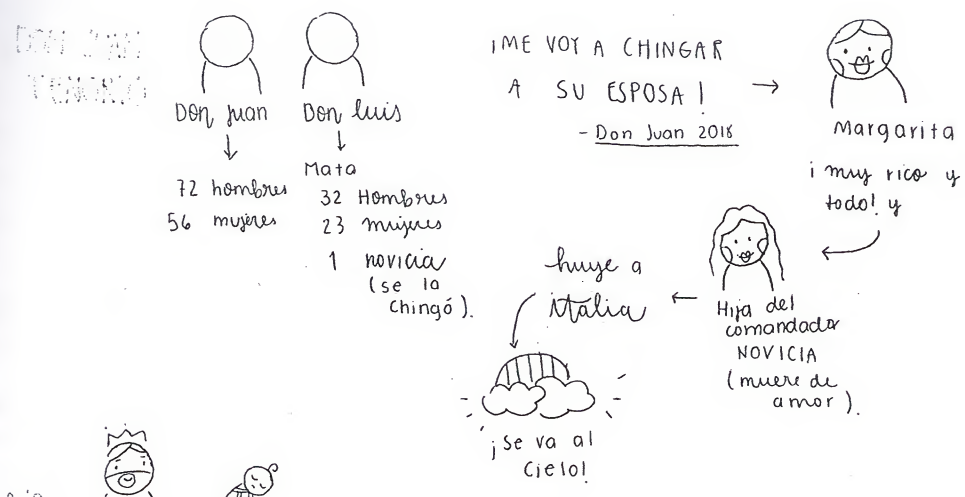 DON JUAN
TENORIO
Don Juan
72 hombres
56 mujeres
Don luis
Mata
32 Hombres
23 mujeres
1 novicia
(se la
chingó).
¡ME VOY A CHINGAR
A SU ESPOSA!
- Don Juan 2018
Margarita
¡muy rico y
todo! y
Hija del
comandador
NOVICIA
(muere de
amor).
huye a
italia
¡Se va al
cielo!